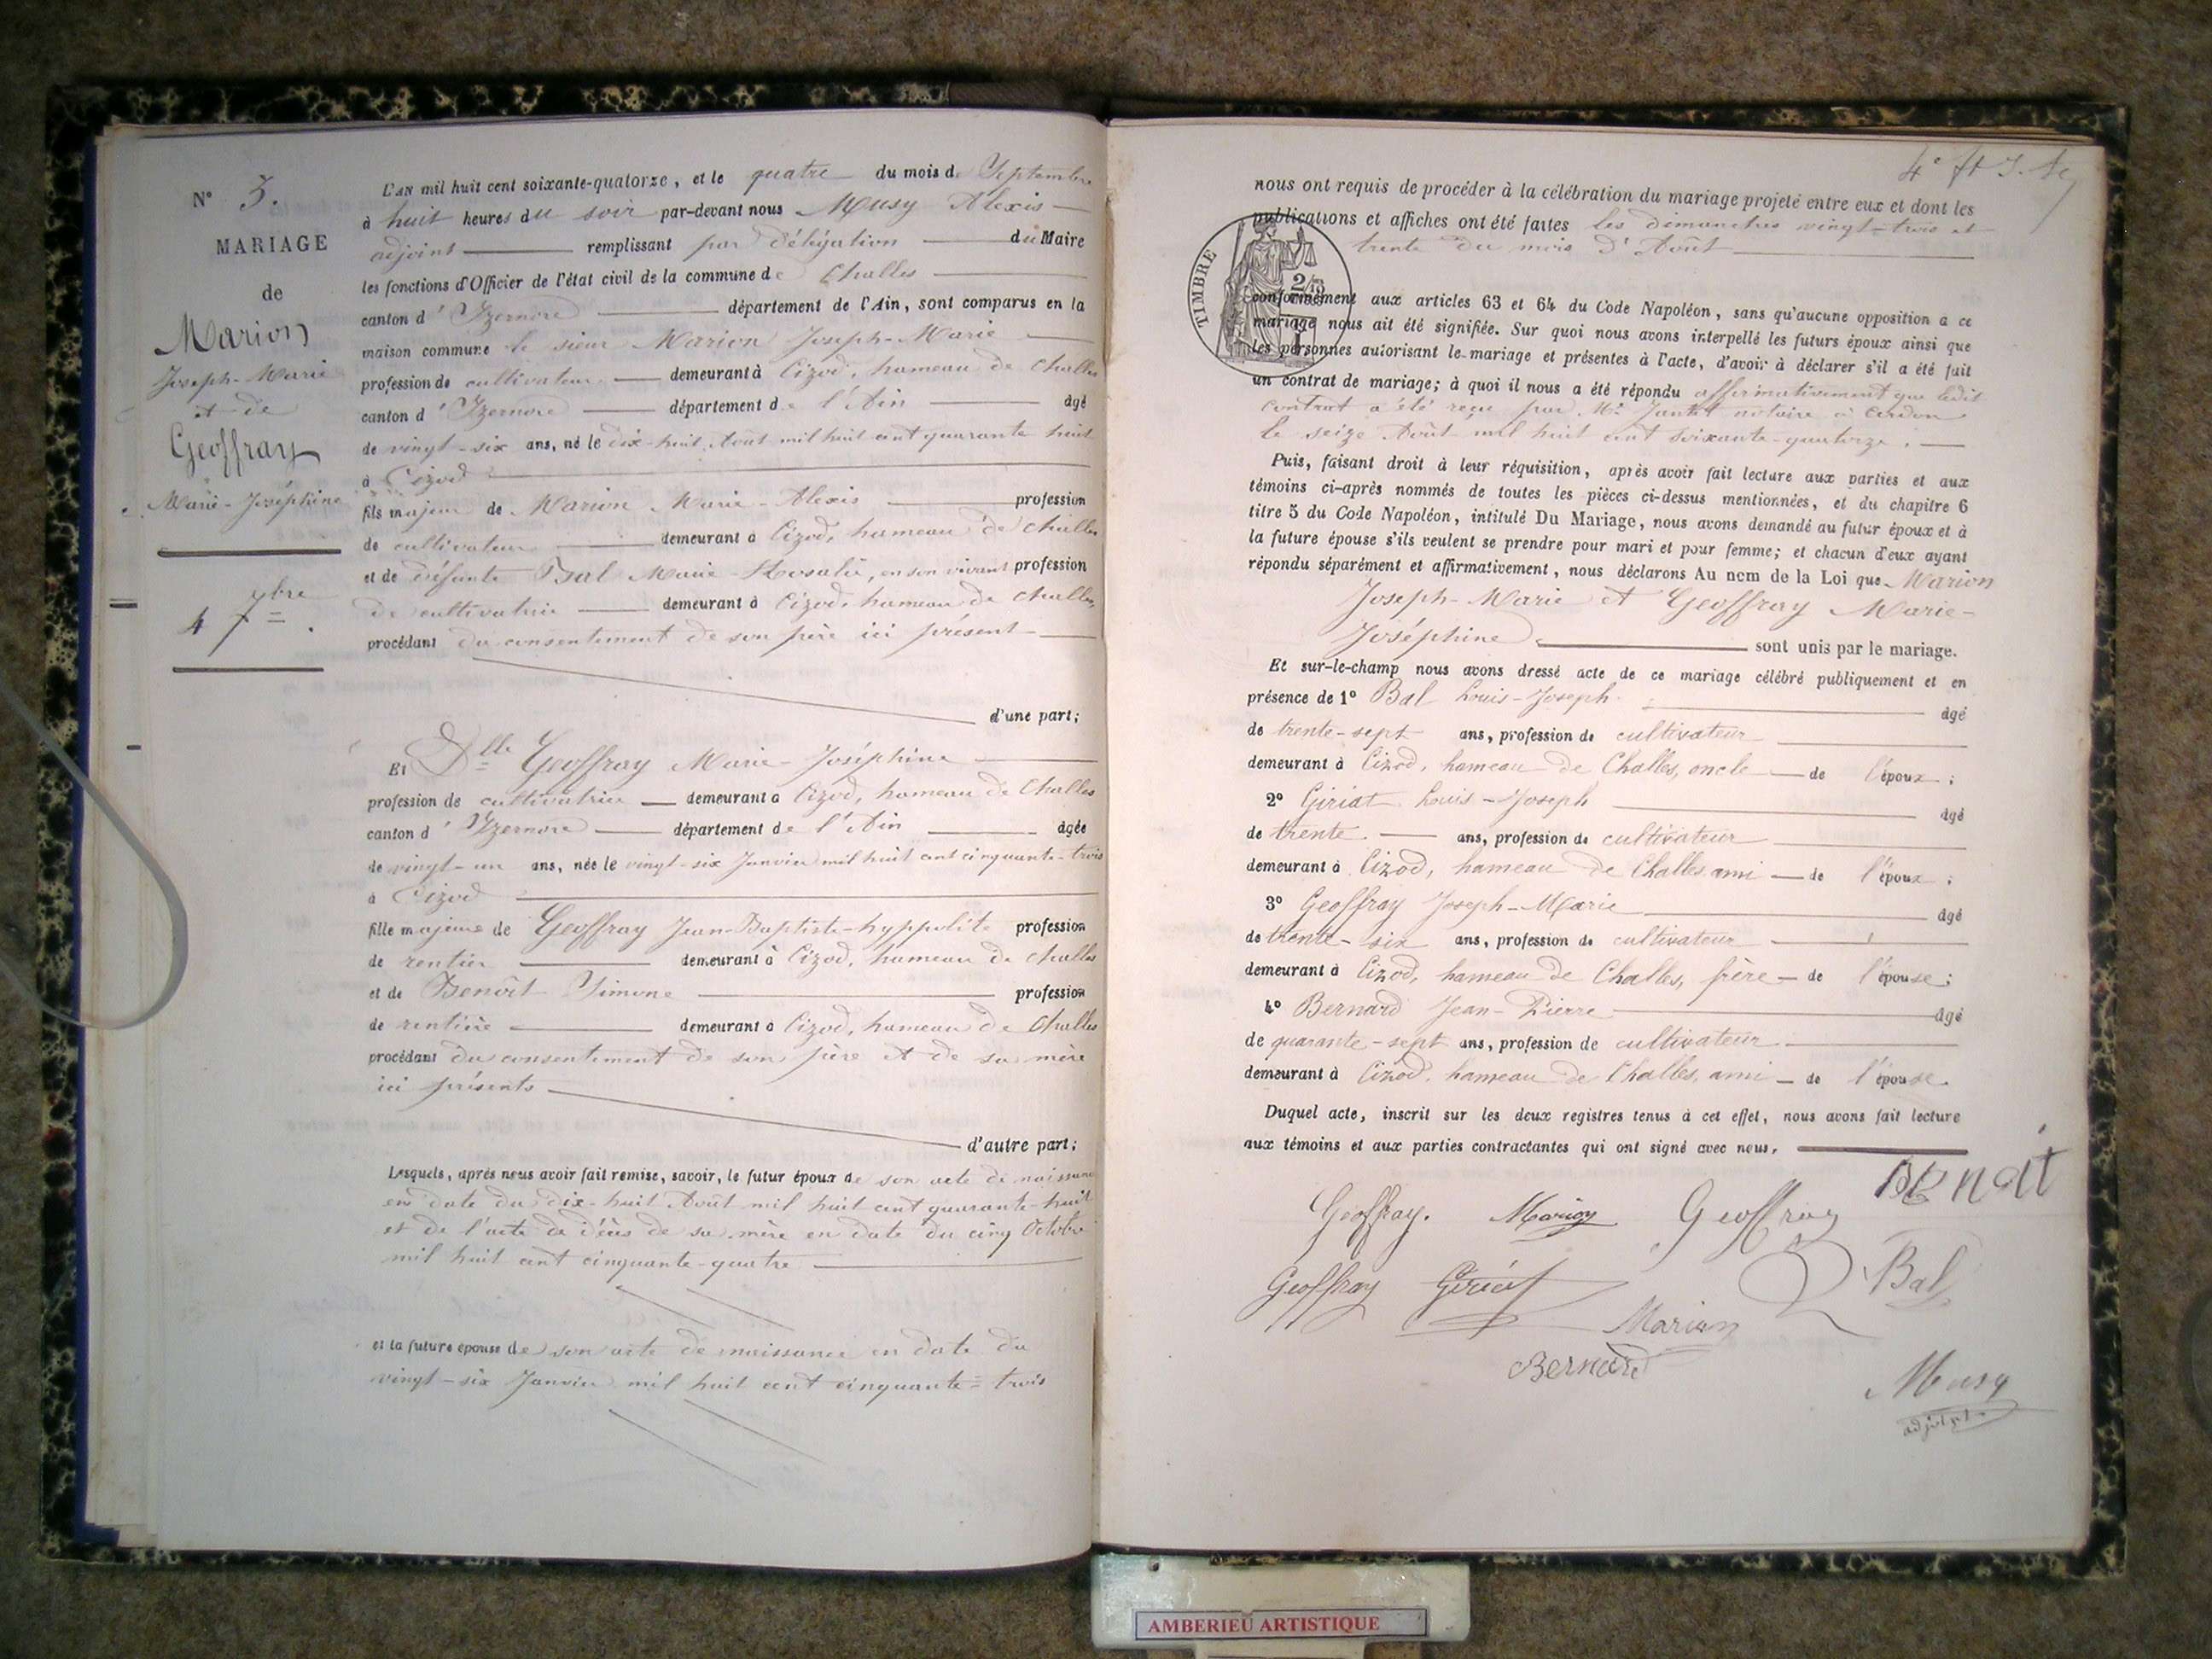 N° 3.
MARIAGE
de
Marion
Joseph-Marie
et de
Geoffray
Marie-Joséphine
4 7bre
L'AN mil huit cent soixante-quatorze, et le quatre du mois de Septembre
à huit heures du soir par-devant nous Musy Alexis
adjoint remplissant par délégation du Maire
les fonctions d'Officier de l'état civil de la commune de Challes
canton d'Izernore département de l'Ain, sont comparus en la
maison commune le sieur Marion Joseph-Marie
profession de cultivateur demeurant à Cizod, hameau de Challes
canton d'Izernore département de l'Ain âgé
de vingt-six ans, né le dix-huit Août mil huit cent quarante huit
à Cizod
fils majeur de Marion Marie-Alexis profession
de cultivateur demeurant à Cizod, hameau de Challes
et de défunte Bal Marie-Rosalie, en son vivant profession
de cultivatrice demeurant à Cizod, hameau de Challes,
procédant du consentement de son père ici présent
d'une part;
Et Dlle Geoffray Marie-Joséphine
profession de cultivatrice demeurant à Cizod, hameau de Challes
canton d'Izernore département de l'Ain âgée
de vingt-un ans, née le vingt-six Janvier mil huit cent cinquante-trois
à Cizod
fille majeure de Geoffray Jean-Baptiste-hyppolite profession
de rentier demeurant à Cizod, hameau de Challes
et de Benoît Simone profession
de rentière demeurant à Cizod, hameau de Challes
procédant du consentement de son père et de sa mère
ici présents
d'autre part;
Lesquels, après nous avoir fait remise, savoir, le futur époux de son acte de naissance
en date du dix-huit Août mil huit cent quarante-huit
et de l'acte de décès de sa mère en date du cinq Octobre
mil huit cent cinquante-quatre
et la future épouse de son acte de naissance en date du
vingt-six Janvier mil huit cent cinquante-trois
nous ont requis de procéder à la célébration du mariage projeté entre eux et dont les
publications et affiches ont été faites les dimanches vingt-trois et
trente du mois d'Août
TIMBRE
conformément aux articles 63 et 64 du Code Napoléon, sans qu'aucune opposition a ce
mariage nous ait été signifiée. Sur quoi nous avons interpellé les futurs époux ainsi que
les personnes autorisant le mariage et présentes à l'acte, d'avoir à déclarer s'il a été fait
un contrat de mariage; à quoi il nous a été répondu affirmativement que ledit
contrat a été reçu par Me Jantet notaire à Cerdon
le seize Août mil huit cent soixante-quatorze.
Puis, faisant droit à leur réquisition, après avoir fait lecture aux parties et aux
témoins ci-après nommés de toutes les pièces ci-dessus mentionnées, et du chapitre 6
titre 5 du Code Napoléon, intitulé Du Mariage, nous avons demandé au futur époux et à
la future épouse s'ils veulent se prendre pour mari et pour femme; et chacun d'eux ayant
répondu séparément et affirmativement, nous déclarons Au nom de la Loi que Marion
Joseph-Marie et Geoffray Marie-
Joséphine sont unis par le mariage.
Et sur-le-champ nous avons dressé acte de ce mariage célébré publiquement et en
présence de 1° Bal Louis-Joseph âgé
de trente-sept ans, profession de cultivateur
demeurant à Cizod, hameau de Challes, oncle de l'époux;
2° Giriat Louis-Joseph âgé
de trente ans, profession de cultivateur
demeurant à Cizod, hameau de Challes ami de l'époux;
3° Geoffray Joseph-Marie âgé
de trente-six ans, profession de cultivateur
demeurant à Cizod, hameau de Challes, frère de l'épouse;
4° Bernard Jean-Pierre âgé
de quarante-sept ans, profession de cultivateur
demeurant à Cizod, hameau de Challes, ami de l'épouse.
Duquel acte, inscrit sur les deux registres tenus à cet effet, nous avons fait lecture
aux témoins et aux parties contractantes qui ont signé avec nous.
Benait
Geoffray. Marion Geoffray
Geoffray Giriat Bal
Marion
Bernard
Musy
adjoint
AMBERIEU ARTISTIQUE